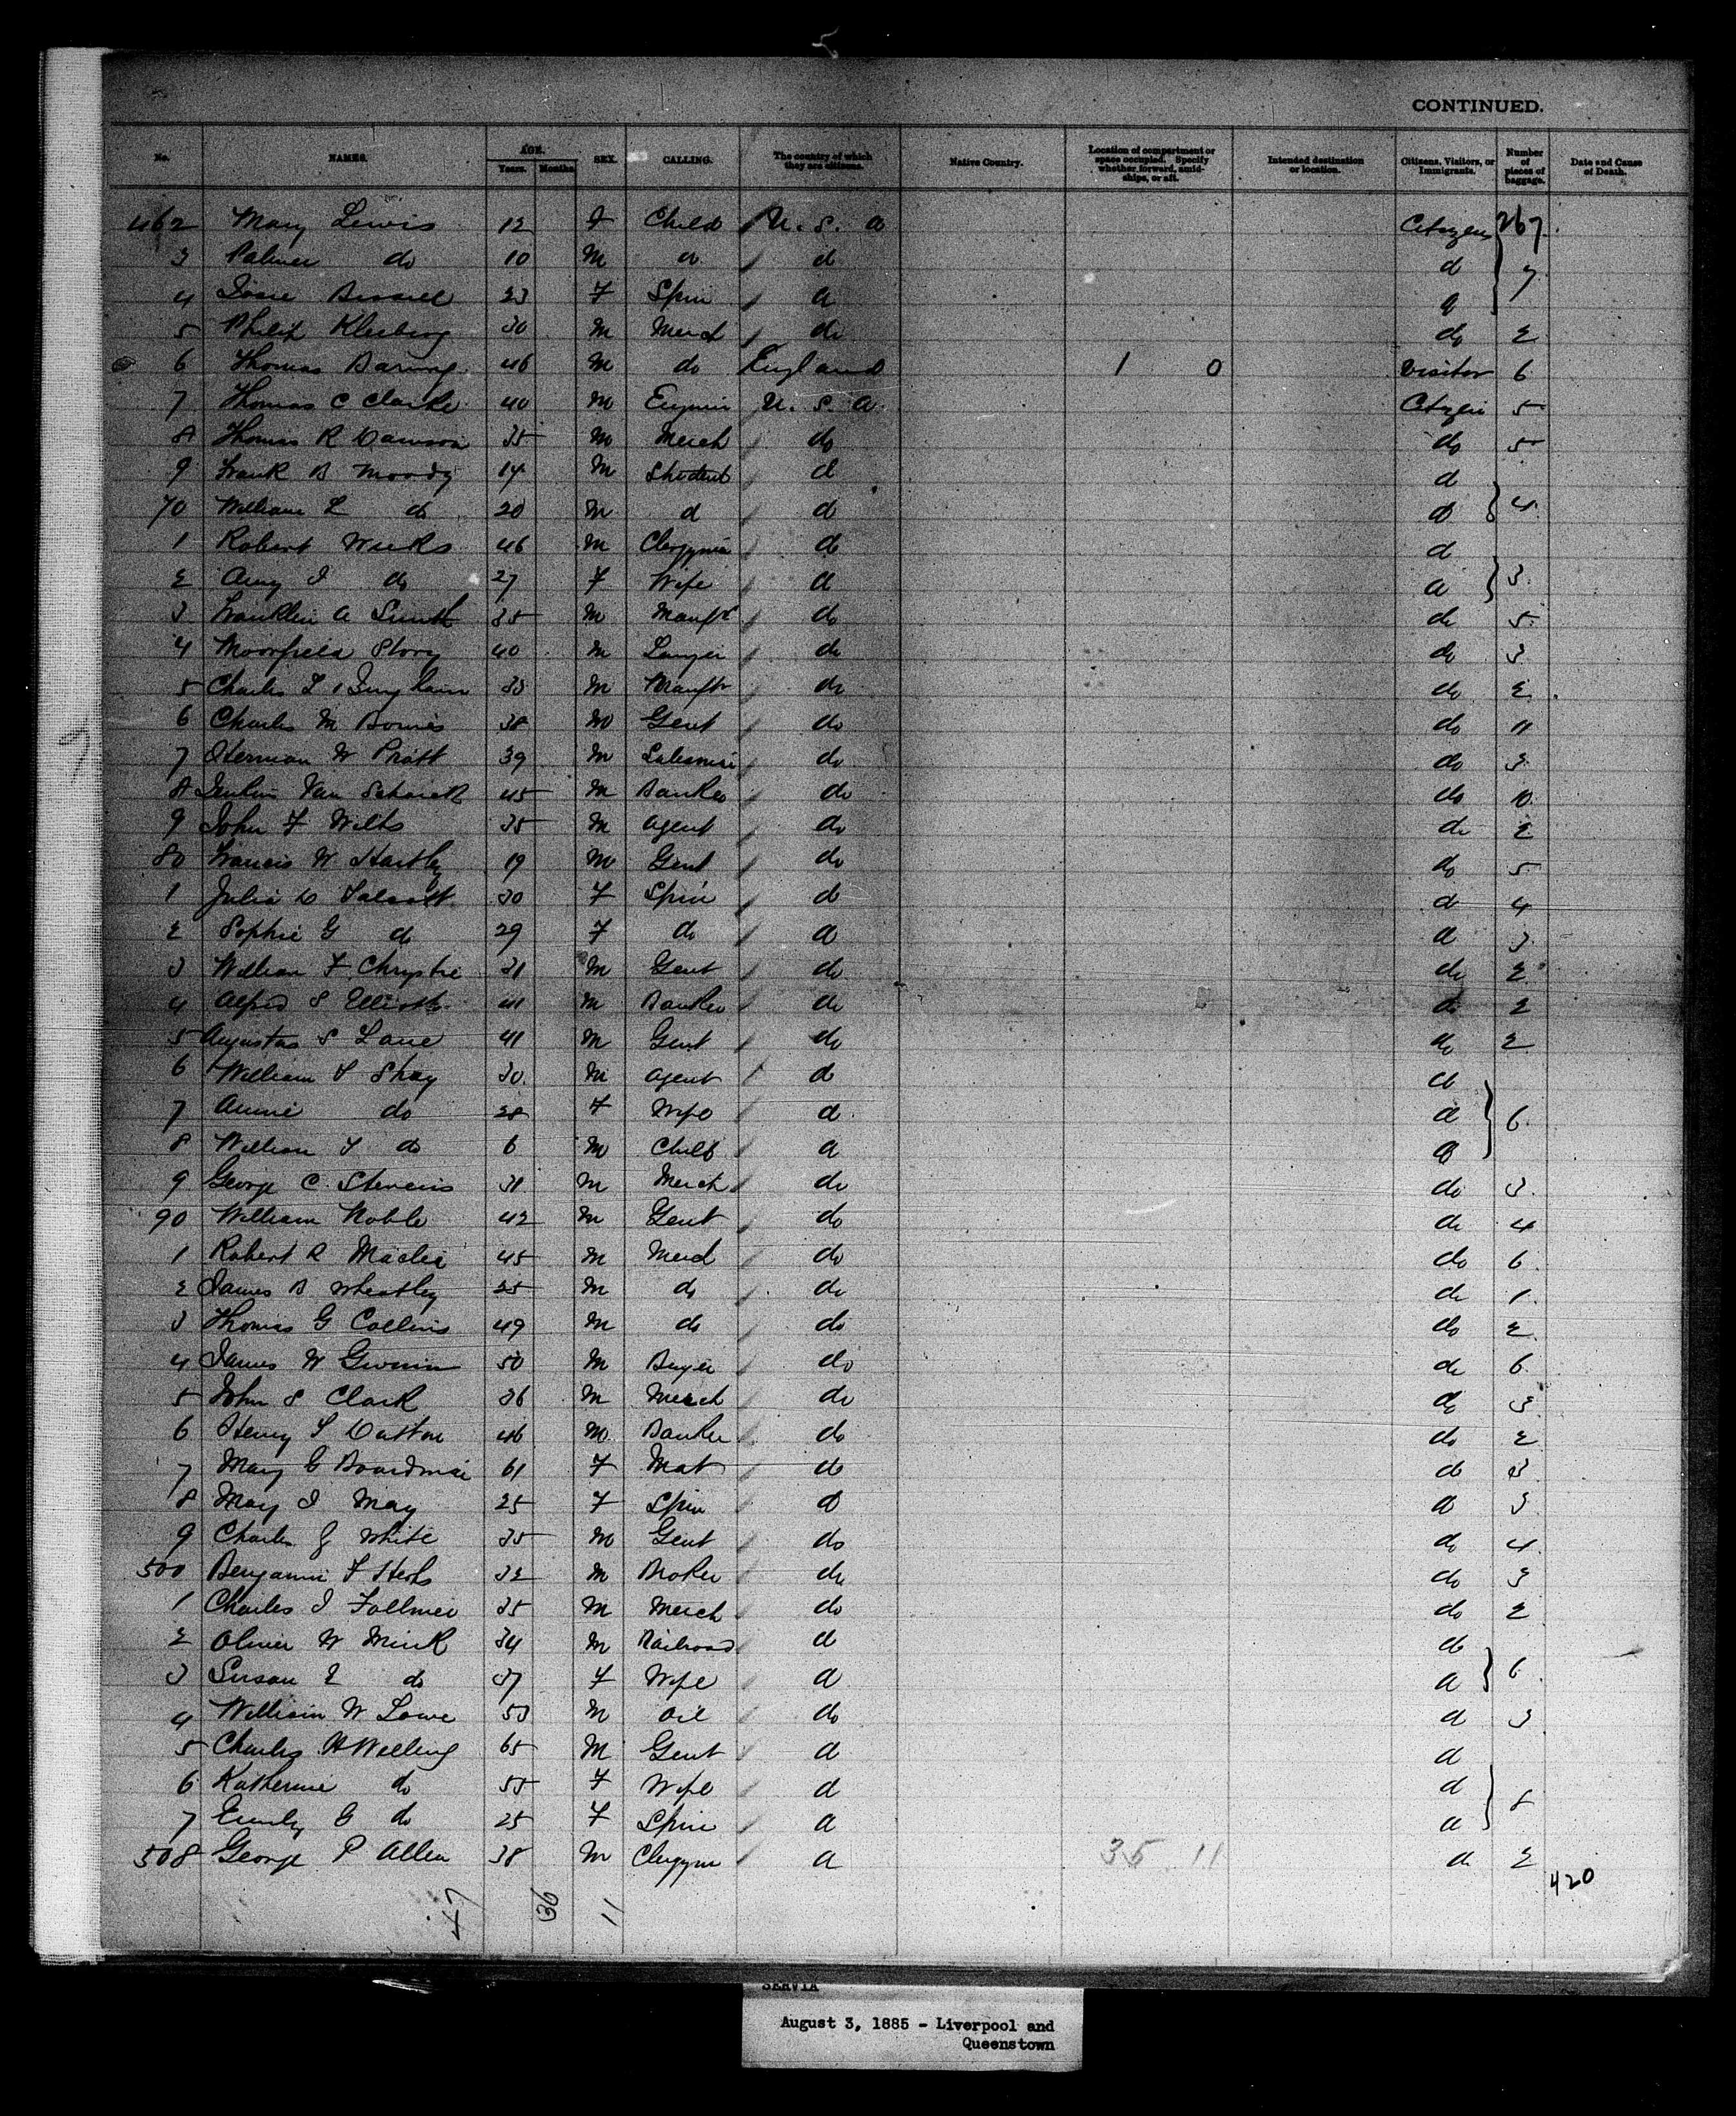 CONTINUED.
No. NAMES. AGE. Years. Months. SEX. CALLING. The country of which they are citizens. Native Country. Location of compartment or space occupied. Specify whether forward, amidships, or aft. Intended destination or location. Citizens, Visitors, or Immigrants. Number of pieces of baggage. Date and Cause of Death.
462 Mary Lewis 12 F Child U. S. A Citizen 267
3 Palmer do 10 M d d d 7
4 23 F Spin d d
5 Philip Kleeberg 30 M Merch do do 2
6 Thomas Baring 46 M do England 1 0 Visitor 6
7 Thomas C Clarke 40 M Engineer U. S. A Citizen 5
8 Thomas R Dawson 35 M Merch do do 5
9 Frank B Moody 14 M Student d d
70 William L do 20 M d d d 4
1 Robert Weeks 46 M Clergyman d d
2 Amy I do 27 F Wife d d 3
3 Franklin A Smith 35 M Manftr do do 5
4 Moorfield Story 40 M Lawyer do do 3
5 Charles L 33 M Manftr do do 2
6 Charles M 38 M Gent do do 11
7 Herman W Pratt 39 M Salesman do do 3
8 Jenkins Van Schaick 45 M Banker do do 10
9 John F Wilts 35 M Agent do do 2
80 Francis W Hartley 19 M Gent do do 5
1 Julia D Talcott 30 F Spin d d 4
2 Sophie G do 29 F do d d 3
3 William F Chrystie 31 M Gent do do 2
4 Alfred S Elliott 41 M Banker do do 2
5 Augustus S Lane 41 M Gent do do 2
6 William T Shay 30 M Agent d d
7 Annie do 28 F Wife d d 6
8 William T do 6 M Child d d
9 George C Stevens 31 M Merch do do 3
90 William Noble 42 M Gent do do 4
1 Robert R 45 M Merch do do 6
2 James B Wheatley 25 M do do do 1
3 Thomas G Collins 49 M do do do 2
4 James W 50 M Buyer do do 6
5 John S Clark 36 M Merch do do 3
6 Henry S Dutton 46 M Banker do do 2
7 Mary C Boardman 61 F Mat d d 3
8 May I May 25 F Spin d d 3
9 Charles J White 35 M Gent do do 4
500 Benjamin F 32 M Broker do do 3
1 Charles I Follmer 35 M Merch do do 2
2 Oliver W Mink 34 M Railroad d d
3 Susan E do 37 F Wife d d 6
4 William W Lowe 53 M Oil do d 3
5 Charles H Welling 65 M Gent d d
6 Katherine do 55 F Wife d d 8
7 Emily G do 25 F Spin d d
508 George P Allen 38 M Clergym d 35 11 d 2
420
47 36 11
SERVIA
August 3, 1885 - Liverpool and
Queenstown